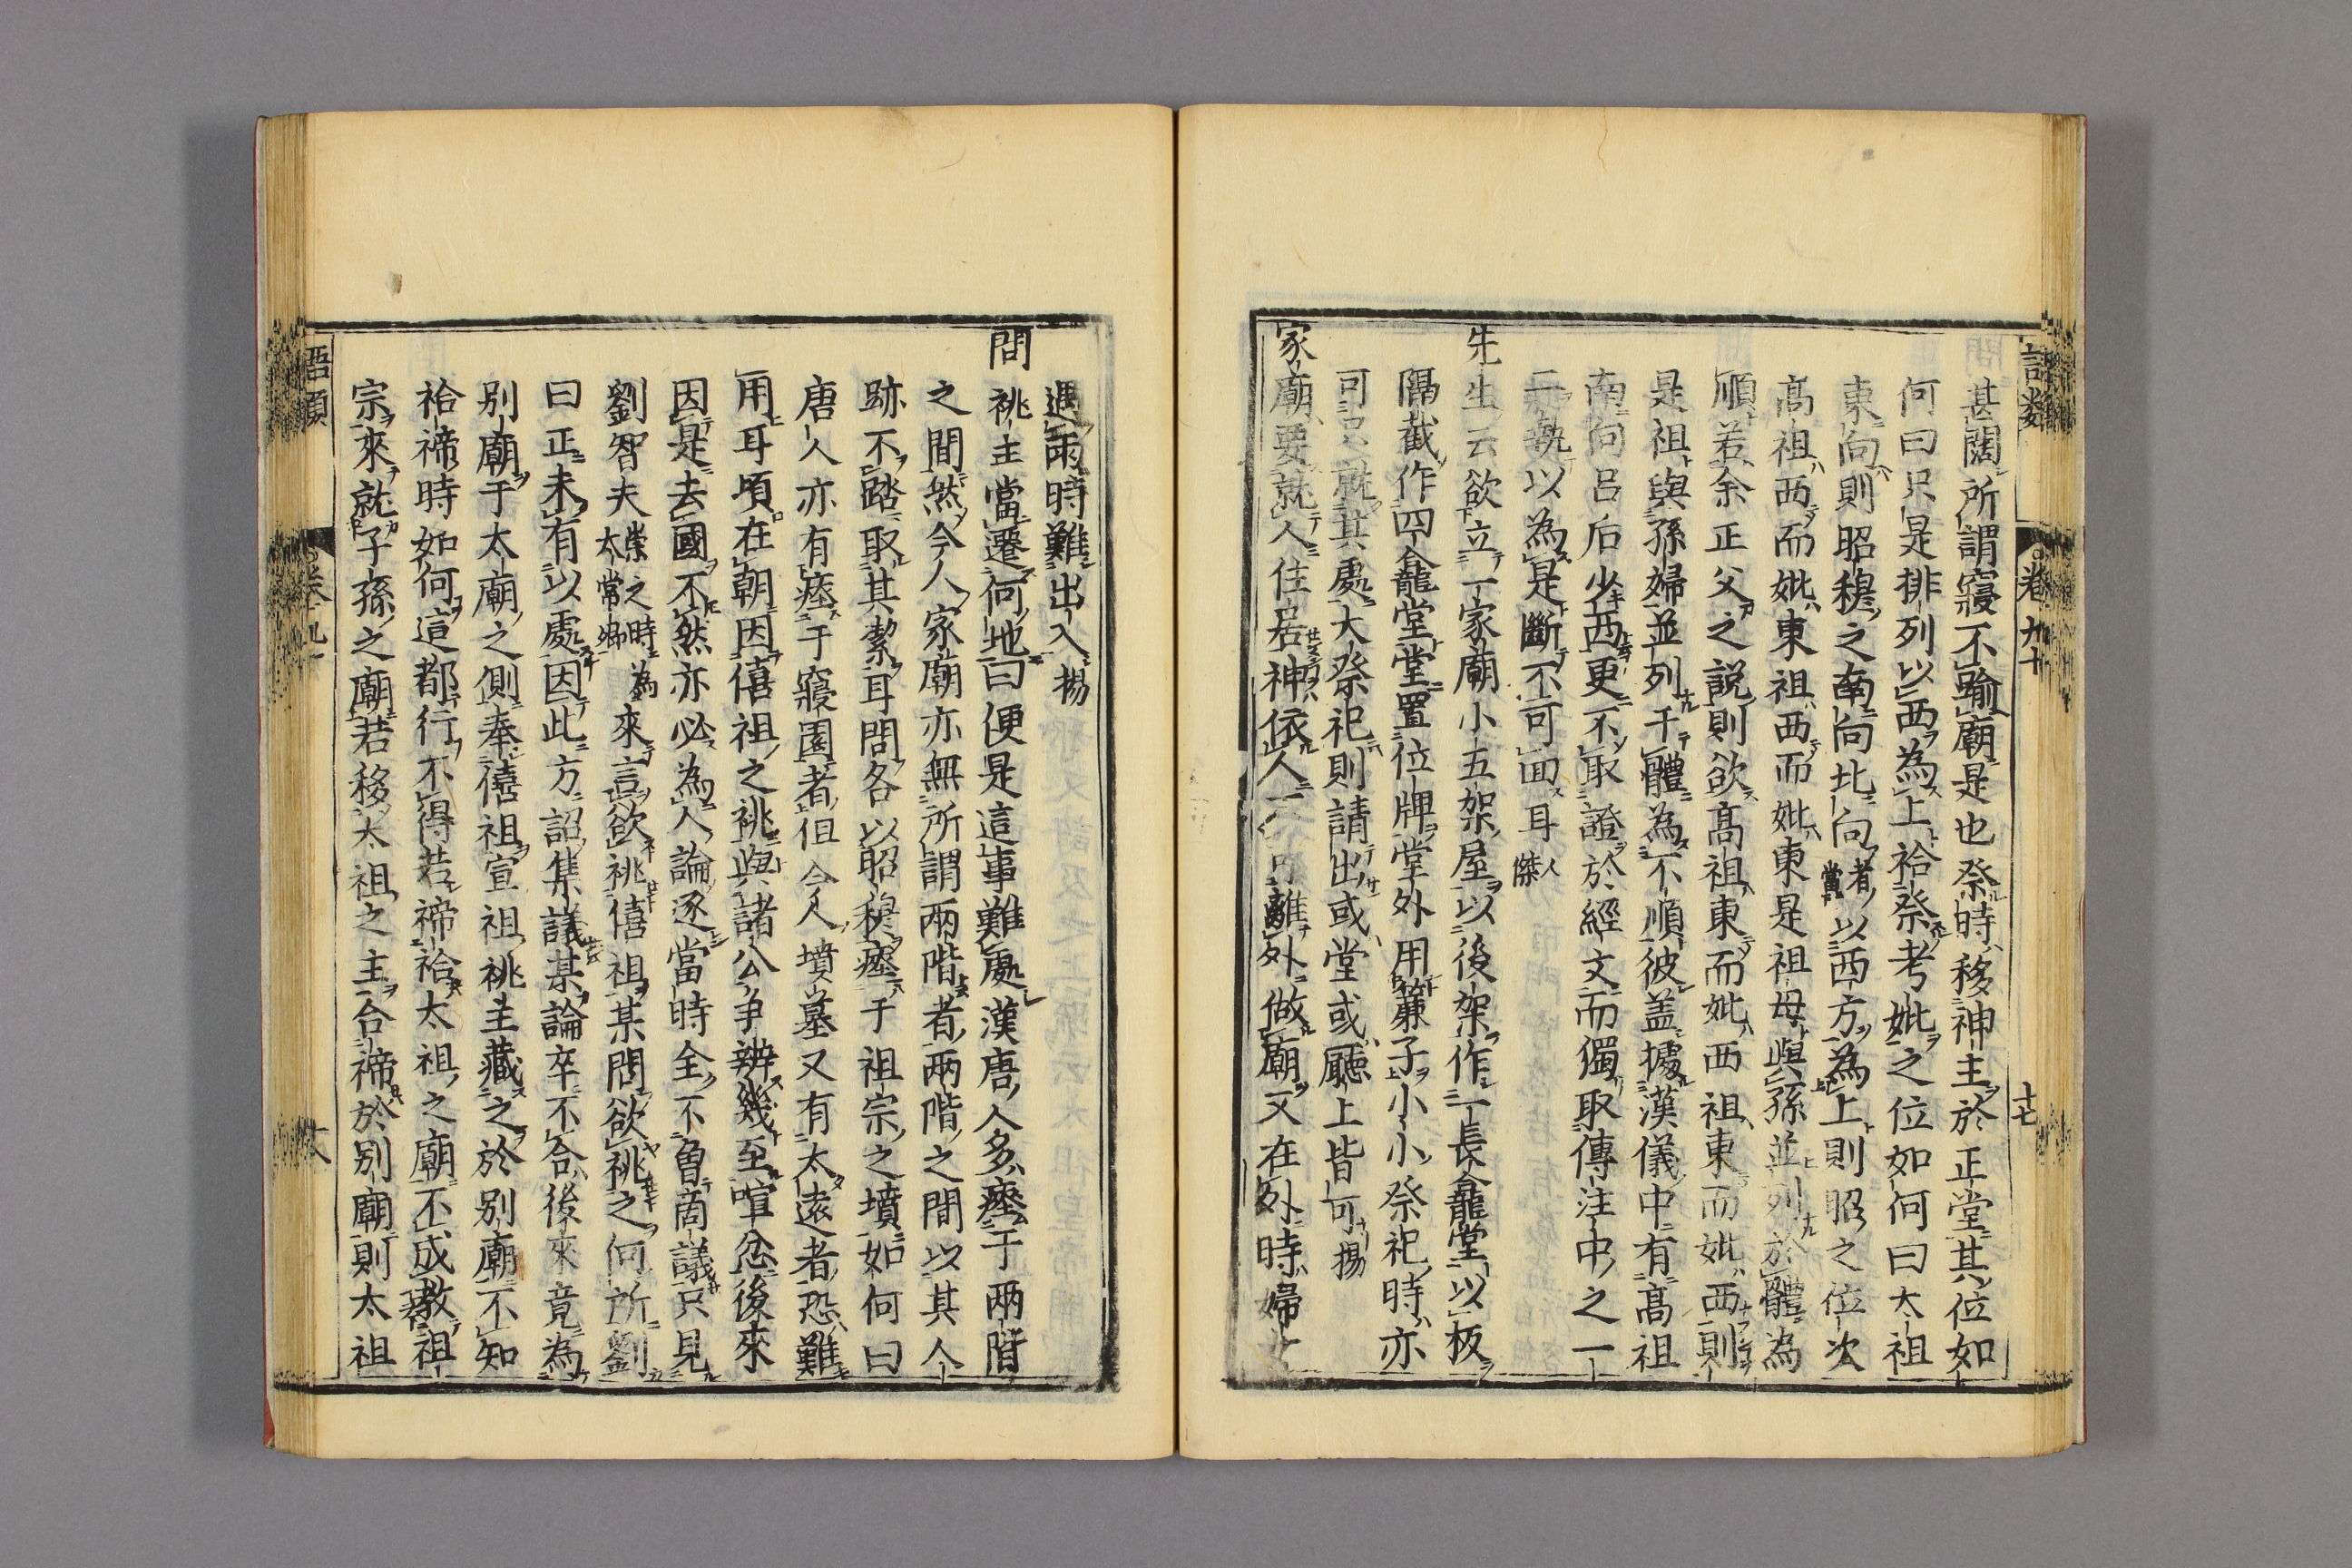 甚闊所謂寢不踰廟是也祭時移神主於正堂其位如
何曰只是排列以西為上祫祭考妣之位如何曰太祖
東向則昭穆之南向北向者當以西方為上則昭之位次
高祖西而妣東祖西而妣東是祖母與孫並列於體為
順若余正父之説則欲高祖東而妣西祖東而妣西則
是祖與孫婦並列于體為不順彼盖據漢儀中有高祖
南向呂后少西更不取證於經文而獨取傳注中之一
二執以為是斷不可回耳人傑
先生云欲立一家廟小五架屋以後架作一長龕堂以板
隔截作四龕堂堂置位牌堂外用簾子小小祭祀時亦
可只就其處大祭祀則請出或堂或廳上皆可揚
家廟要就人住居神依人不可離外做廟又在外時婦女
遇雨時難出入揚
問祧主當遷何地曰便是這事難處漢唐人多瘞于兩階
之間然今人家廟亦無所謂兩階者兩階之間以其人
跡不踏取其潔耳問各以昭穆瘞于祖宗之墳如何曰
唐人亦有瘞于寢園者但今人墳墓又有太遠者恐難
用耳頃在朝因僖祖之祧與諸公爭辨幾至喧忿後來
因是去國不然亦必為人論逐當時全不曾商議只見
劉智夫崇之時為太常卿來言欲祧僖祖某問欲祧之何所劉
曰正未有以處因此方詔集議某論卒不合後來竟為
別廟于太廟之側奉僖祖宣祖祧主藏之於別廟不知
祫禘時如何這都行不得若禘祫太祖之廟不成教祖
宗來就子孫之廟若移太祖之主合禘於別廟則太祖
語類
卷九十
十七
語類
卷九十